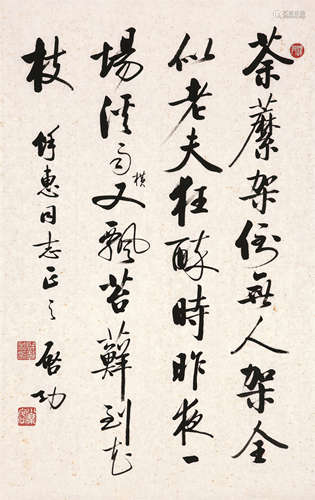 荼蘼架倒無人架全
似老夫狂醉時昨夜一
場溪雨又飄苔蘚到花
橫
枝
任惠同志正之 启功